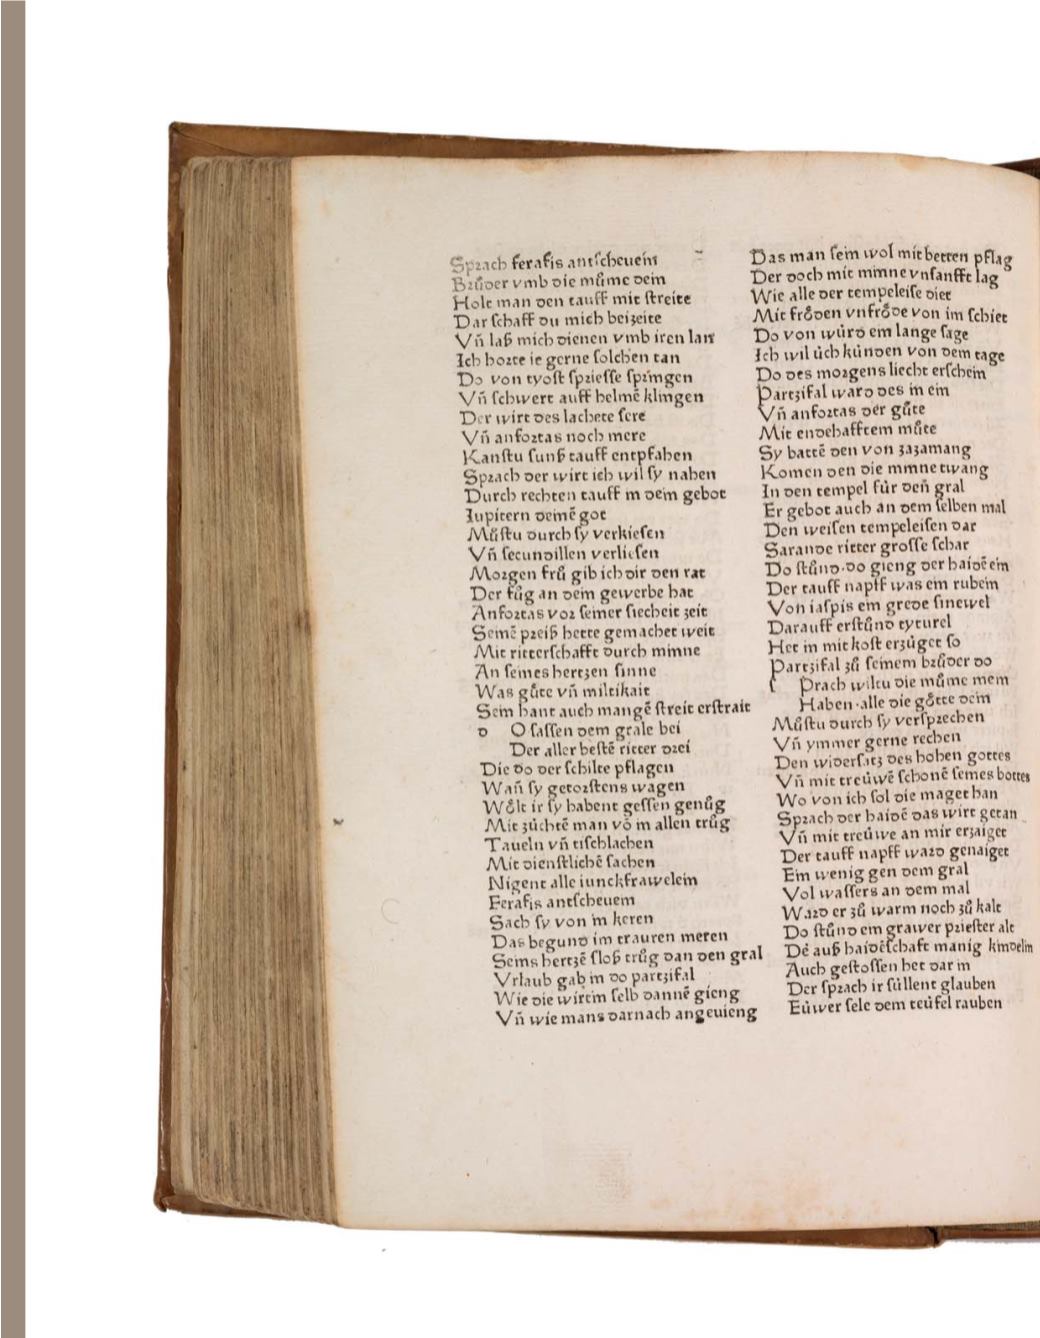 Sprach ferafis antſcheuein
Brůder vmb die můme dein
Holt man den tauff mit ſtreite
Dar ſchaff du mich beizeite
Vñ laß mich dienen vmb iren lan
Ich horte ie gerne ſolchen tan
Do von tyoſt ſprieſſe ſpringen
Vñ ſchwert auff helmē klingen
Der wirt des lachete ſere
Vñ anfortas noch mere
Kanſtu ſunß tauff entpfahen
Sprach der wirt ich wil ſy nahen
Durch rechten tauff in dein gebot
Iupitern deinē got
Můſtu durch ſy verkieſen
Vñ ſecundillen verlieſen
Morgen frů gib ich dir den rat
Der fůg an dem gewerbe hat
Anfortas vor ſeiner ſiecheit zeit
Seinē preiß hette gemachet weit
Mit ritterſchafft durch minne
An ſeines hertzen ſinne
Was gůte vñ miltikait
Sein hant auch mangē ſtreit erſtrait
d O ſaſſen dem grale bei
Der aller beſtē ritter drei
Die do der ſchilte pflagen
Wañ ſy getorſtens wagen
Wőlt ir ſy habent geſſen genůg
Mit zúchtē man vō in allen trůg
Taueln vñ tiſchlachen
Mit dienſtlichē ſachen
Nigent alle iunckfrawelein
Ferafis antſcheuein
Sach ſy von in keren
Das begund im trauren meren
Seins hertzē ſloß trůg dan den gral
Vrlaub gab in do partzifal
Wie die wirtin ſelb dannē gieng
Vñ wie mans darnach angeuieng
Das man ſein wol mit betten pflag
Der doch mit minne vnſanfft lag
Wie alle der tempeleiſe diet
Mit frőden vnfrőde von im ſchiet
Do von würd ein lange ſage
Ich wil úch künden von dem tage
Do des morgens liecht erſchein
Partzifal ward des in ein
Vñ anfortas der gůte
Mit endehafftem můte
Sy battē den von zazamang
Komen den die minne twang
In den tempel für deñ gral
Er gebot auch an dem ſelben mal
Den weiſen tempeleiſen dar
Sarande ritter groſſe ſchar
Do ſtůnd·do gieng der haidē ein
Der tauff napff was ein rubein
Von iaſpis ein grede ſinewel
Darauff erſtůnd tyturel
Het in mit koſt erzúget ſo
Partzifal zů ſeinem brůder do
ſ Prach wiltu die můme mein
Haben·alle die gőtte dein
Můſtu durch ſy verſprechen
Vñ ymmer gerne rechen
Den widerſatz des hohen gottes
Vñ mit treúwē ſchonē ſeines bottes
Wo von ich ſol die maget han
Sprach der haidē das wirt getan
Vñ mit treúwe an mir erzaiget
Der tauff napff ward genaiget
Ein wenig gen dem gral
Vol waſſers an dem mal
Ward er zů warm noch zů kalt
Do ſtůnd ein grawer prieſter alt
Dē auß haidēſchaft manig kindelin
Auch geſtoſſen het dar in
Der ſprach ir ſúllent glauben
Eúwer ſele dem teúfel rauben